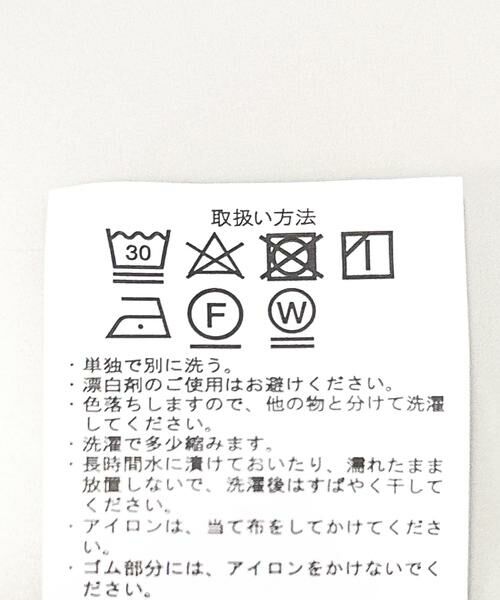 取扱い方法
30
F W
・単独で別に洗う。
・漂白剤のご使用はお避けください。
・色落ちしますので、他の物と分けて洗濯
してください。
・洗濯で多少縮みます。
・長時間水に漬けておいたり、濡れたまま
放置しないで、洗濯後はすばやく干して
ください。
・アイロンは、当て布をしてかけてくださ
い。
・ゴム部分には、アイロンをかけないでく
ださい。